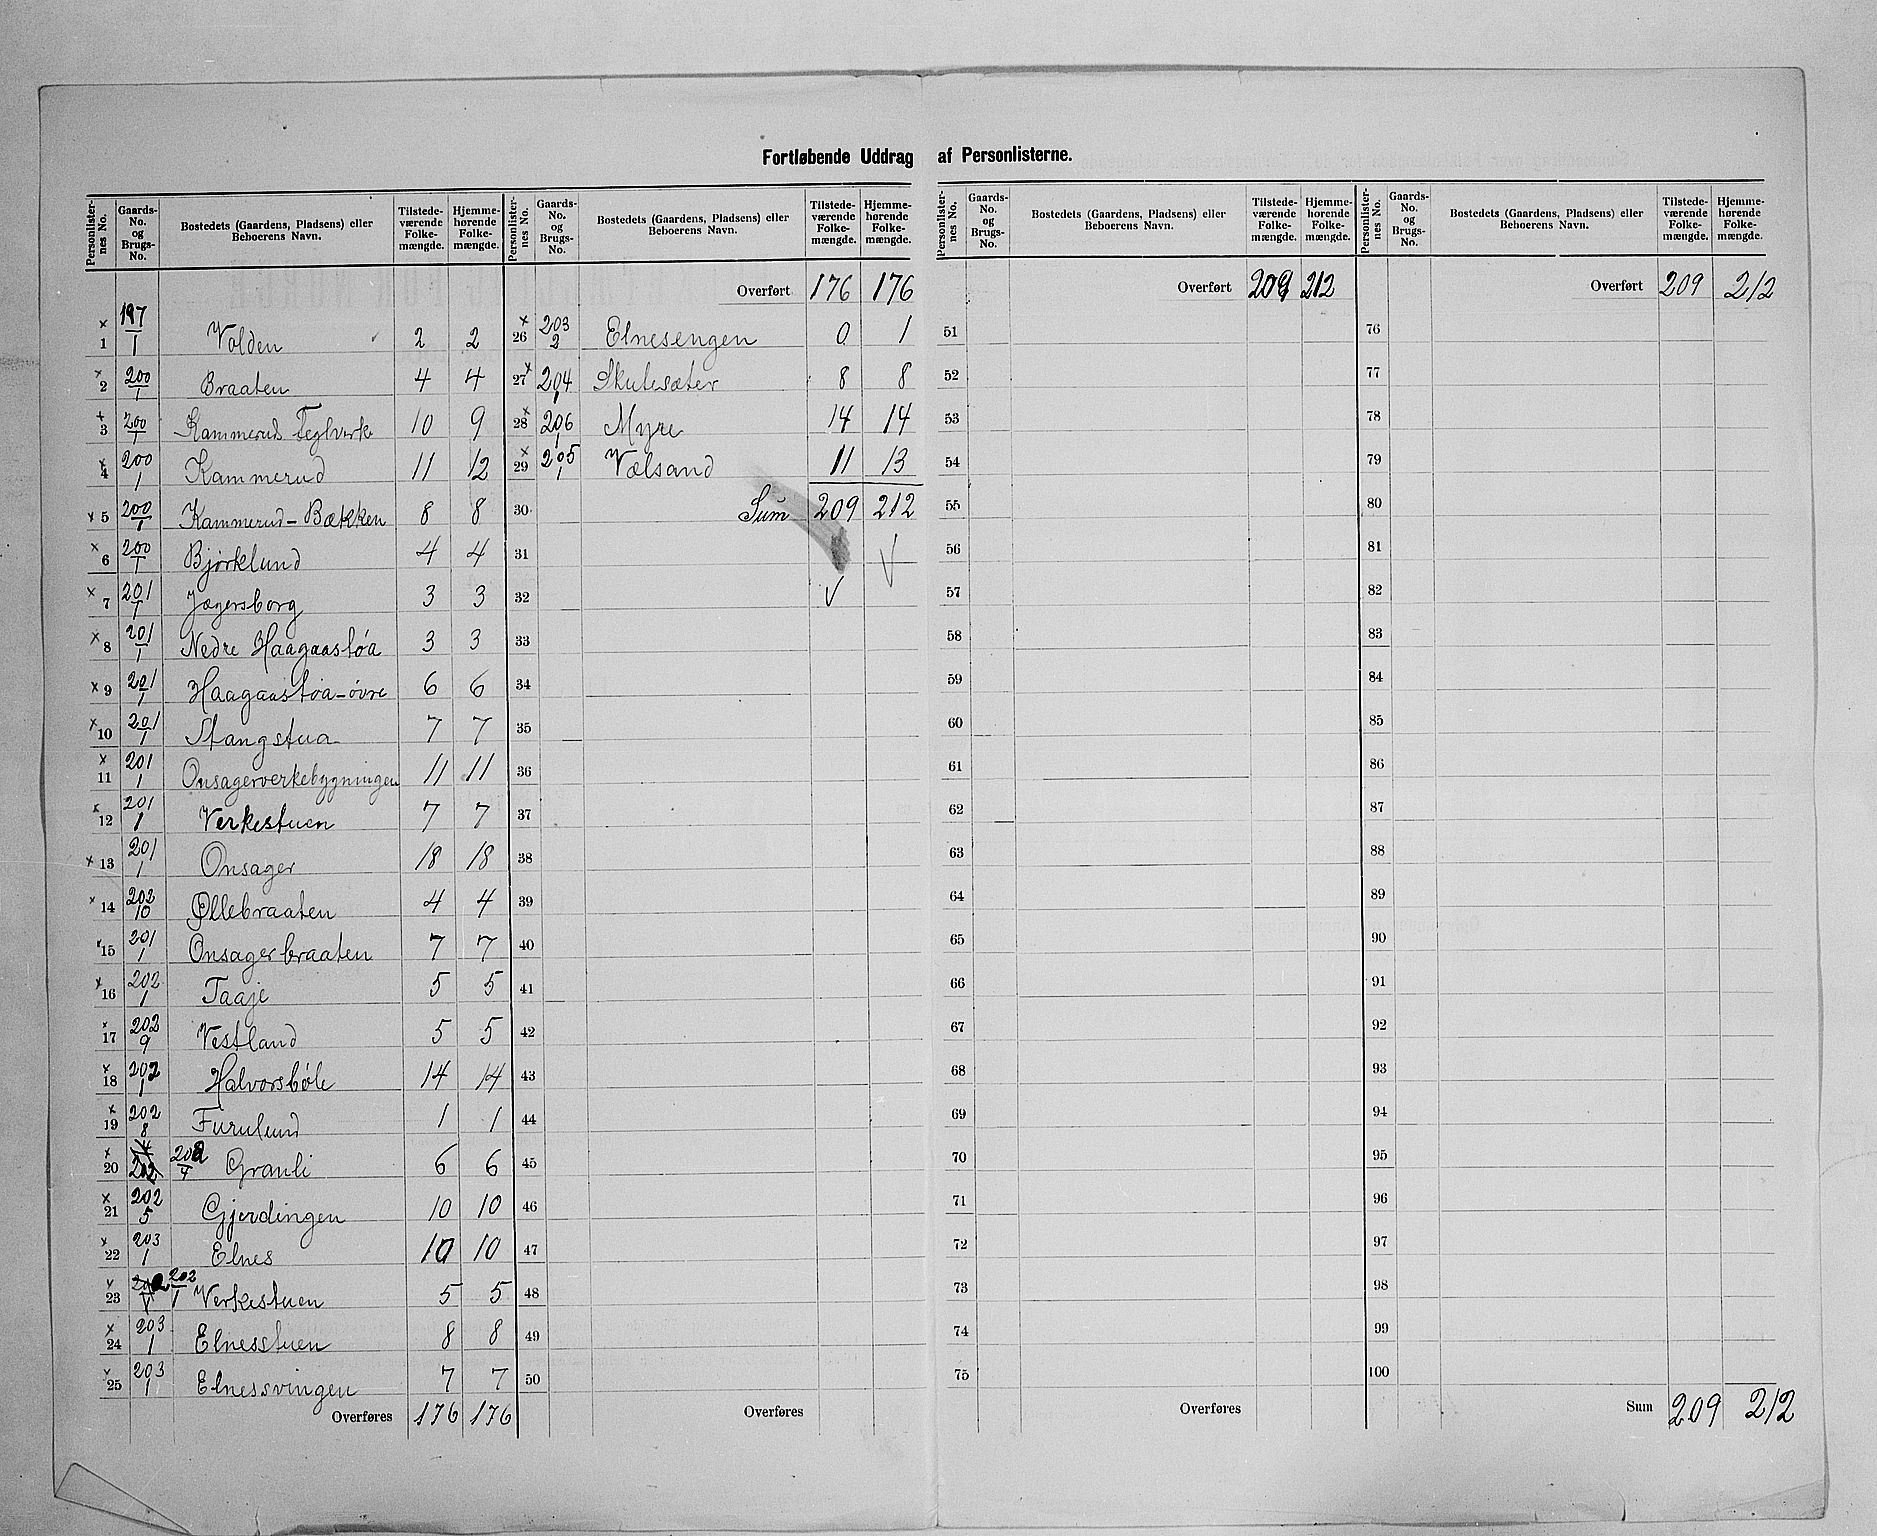 Fortløbende Uddrag af Personlisterne.
Personlisternes No. | Gaards-No. og Brugs-No. | Bostedets (Gaardens, Pladsens) eller Beboerens Navn. | Tilstedeværende Folkemængde. | Hjemmehørende Folkemængde.
× 1 | 197/1 | Volden | 2 | 2
× 2 | 200/1 | Braaten | 4 | 4
+ 3 | 200/1 | Kammerud Teglverk | 10 | 9
× 4 | 200/1 | Kammerud | 11 | 12
× 5 | 200/1 | Kammerud-Bækken | 8 | 8
× 6 | 200/1 | Bjørklund | 4 | 4
× 7 | 201/1 | Jægersborg | 3 | 3
× 8 | 201/1 | Nedre Haagaastøa | 3 | 3
× 9 | 201/1 | Haagaastøa-øvre | 6 | 6
× 10 | 201/1 | Stangstua | 7 | 7
× 11 | 201/1 | Onsagerverkebygningen | 11 | 11
× 12 | 201/1 | Verkestuen | 7 | 7
× 13 | 201/1 | Onsager | 18 | 18
× 14 | 202/10 | Øllebraaten | 4 | 4
× 15 | 201/1 | Onsagerbraaten | 7 | 7
× 16 | 202/1 | Taaje | 5 | 5
× 17 | 202/9 | Vestland | 5 | 5
× 18 | 202/1 | Halvorsbøle | 14 | 14
× 19 | 202/8 | Furulund | 1 | 1
× 20 | 202/4 | Granli | 6 | 6
× 21 | 202/5 | Gjerdingen | 10 | 10
× 22 | 203/1 | Elnes | 10 | 10
× 23 | 202/1 | Verkestuen | 5 | 5
× 24 | 203/1 | Elnesstuen | 8 | 8
× 25 | 203/1 | Elnessvingen | 7 | 7
Overføres | 176 | 176
Personlisternes No. | Gaards-No. og Brugs-No. | Bostedets (Gaardens, Pladsens) eller Beboerens Navn. | Tilstedeværende Folkemængde. | Hjemmehørende Folkemængde.
Overført | 176 | 176
× 26 | 203/2 | Elnesengen | 0 | 1
× 27 | 204/1 | Skutesæter | 8 | 8
× 28 | 206/1 | Myre | 14 | 14
× 29 | 205/1 | Vælsand | 11 | 13
30 | Sum | 209 | 212
31 | √
32 | √
33
34
35
36
37
38
39
40
41
42
43
44
45
46
47
48
49
50
Overføres
Personlisternes No. | Gaards-No. og Brugs-No. | Bostedets (Gaardens, Pladsens) eller Beboerens Navn. | Tilstedeværende Folkemængde. | Hjemmehørende Folkemængde.
Overført | 209 | 212
51
52
53
54
55
56
57
58
59
60
61
62
63
64
65
66
67
68
69
70
71
72
73
74
75
Overføres
Personlisternes No. | Gaards-No. og Brugs-No. | Bostedets (Gaardens, Pladsens) eller Beboerens Navn. | Tilstedeværende Folkemængde. | Hjemmehørende Folkemængde.
Overført | 209 | 212
76
77
78
79
80
81
82
83
84
85
86
87
88
89
90
91
92
93
94
95
96
97
98
99
100
Sum | 209 | 212